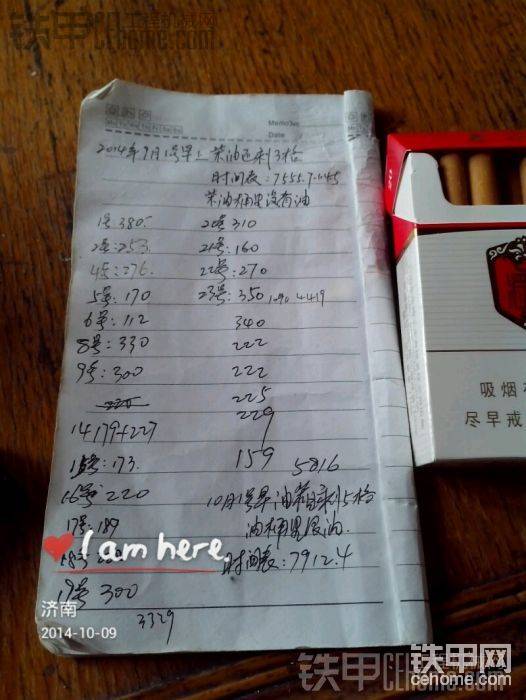 铁甲工程机械网
cehome.com
Memo No.
Date
2014年9月1号早上柴油还剩3格
时间表:7555.7
柴油桶里没有油
1号380
2号:253
4号:276
5号:170
6号:112
8号:330
9号:300
14 179+227
15号:173
16号 220
17号:189
18号
19号 300
3329
20号310
21号:160
22号:270
23号:350 1090 4419
340
222
222
225
229
159 5816
10月1号早油箱剩5格
油桶里没油
时间表:7912.4
I am here
济南
2014-10-09
吸烟
尽早戒
铁甲网
cehome.com